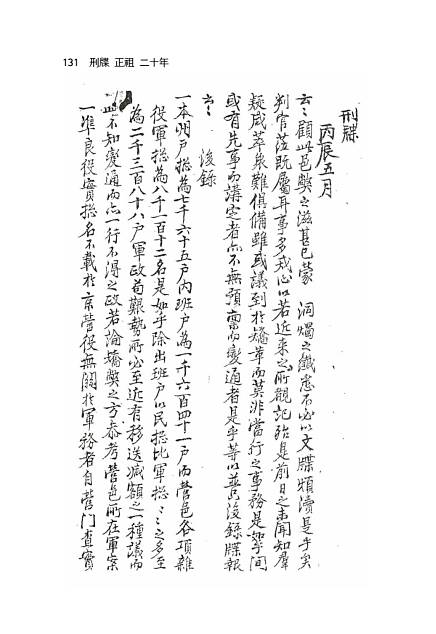 131 刑牒 正祖 二十年
刑牒
丙辰五月
云云顧此邑弊之滋甚已蒙 洞燭之纖悉不必以文牒煩瀆是乎矣
判官莅旣屬耳事多戒心以若近來之所覩記殆是前日之未聞知群
疑咸萃衆難俱備雖或議到於矯革而莫非當行之事務是絜間
或有先事而講定者而不無預雷而變通者是乎等以並只後錄牒報
云云
後錄
一本州戶摠為七千六十五戶內班戶為一千六百四十一戶而營邑各項雜
役軍摠為八千一百十二名是如乎除出班戶以民摠比軍摠軍摠之多至
為二千三百八十八戶軍政苟艱勢所必至近有移送減額之一種議而
此不知變通而亦一行不得之政若論矯弊之方泰考營邑所在軍案
一準良役實摠名不載於京營役無關於軍務者自營門査實